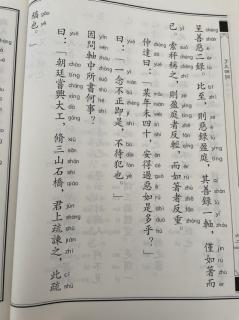 了凡四訓
呈善惡錄。比至,則惡錄盈庭,其善錄一軸,僅如箸而
已。索秤稱之,則盈庭者反輕,而如箸者反重。
仲達曰:「某年未四十,安得過惡如是多乎?」
曰:「一念不正即是,不待犯也。」
因問軸中所書何事?
曰:「朝廷嘗興大工,修三山石橋,君上疏諫之,此疏
稿也。」